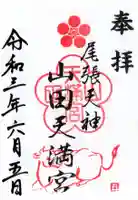 奉拝
尾張天神
山田天満宮
令和三年六月五日